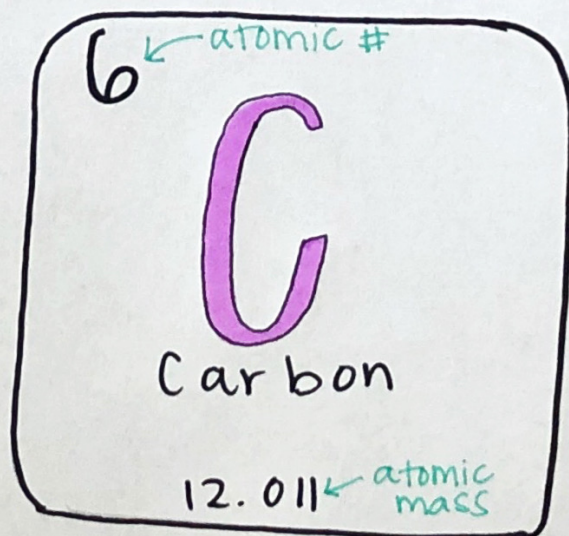 6 atomic #
C
Carbon
12.011 atomic
mass